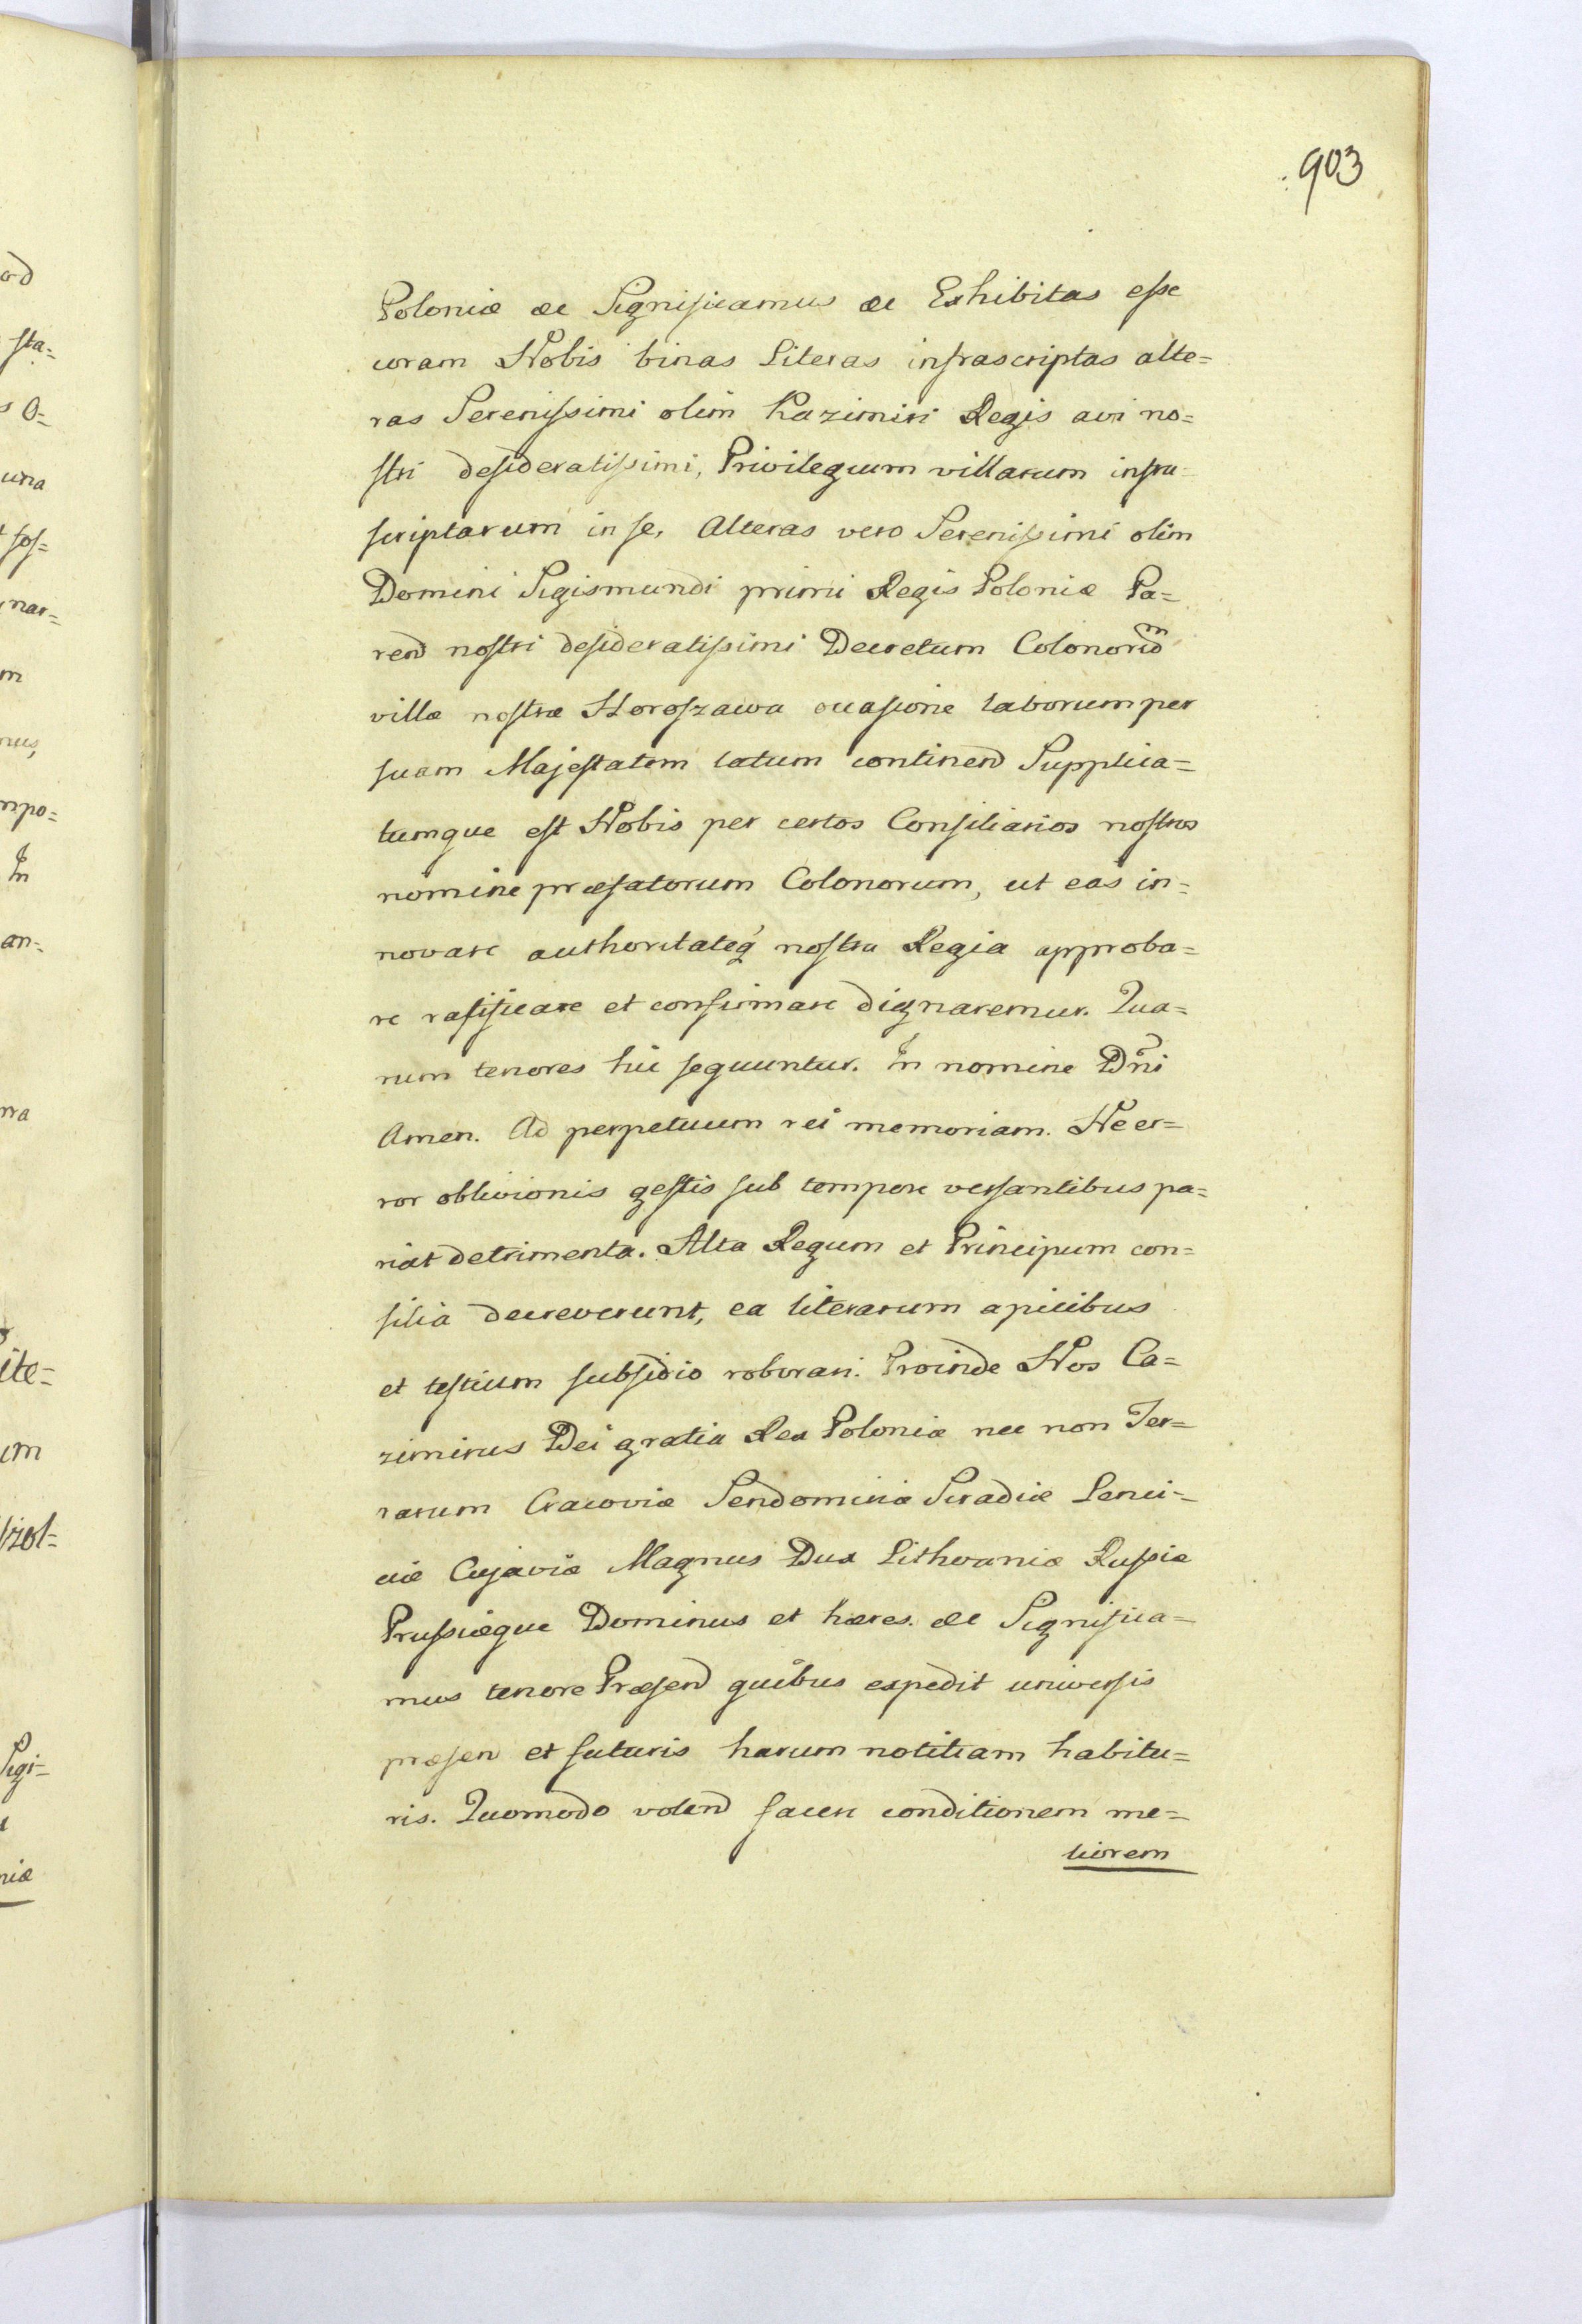 903
Poloniæ &c Significamus &c Exhibitas eſse
coram Nobis binas Literas infrascriptas alte=
ras Sereniſsimi olim Kazimiri Regis avi no=
ſtri deſideratiſsimi, Privilegium villarum infra=
ſcriptarum in ſe, Alteras vero Sereniſsimi olim
Domini Sigismundi primi Regis Poloniæ Pa=
rend noſtri deſideratiſsimi Decretum Colonorum
villæ noſtræ Horoſzawa occaſione laborum per
ſuam Majeſtatem latum continend Supplica=
tumque eſt Nobis per certos Conſiliarios noſtros
nomine præfatorum Colonorum, ut eas in=
novare authoritateq noſtra Regia approba=
re ratificare et confirmare dignaremur. Qua=
rum tenores hic ſequuntur. In nomine Dni
Amen. Ad perpetuum rei memoriam. Ne er=
ror oblivionis geſtis ſub tempore verſantibus pa=
riat detrimenta. Alta Regum et Principum con=
ſilia decreverunt, ea literarum apicibus
et teſtium ſubſidio roborari. Proinde Nos Ca=
zimirus Dei gratia Rex Poloniæ nec non Ter=
rarum Cracoviæ Sendomiriæ Siradiæ Lenci=
ciæ Cujaviæ Magnus Dux Lithvaniæ Ruſsiæ
Pruſsiæque Dominus et hæres. &c Significa=
mus tenore Præſend quibus expedit univerſis
præſen et futuris harum notitiam habitu=
ris. Quomodo volend facere conditionem me=
liorem
ad
sta=
o=
una
ſoſ=
nar=
m
mpo=
In
an=
ite=
um
Sigi=
niæ